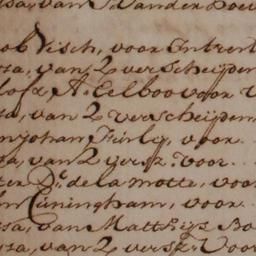 van der
ob Visch, voor Intrest
sa, van 2 verscheijden
A: Elboo voor
a, van 2 verscheijden
Johan Finlij, voor
sa, van 2 versz: voor
de la motte, voor
Cuningham, voor
ssa, van Matthijs Bo
sa, van 2 versz: voor